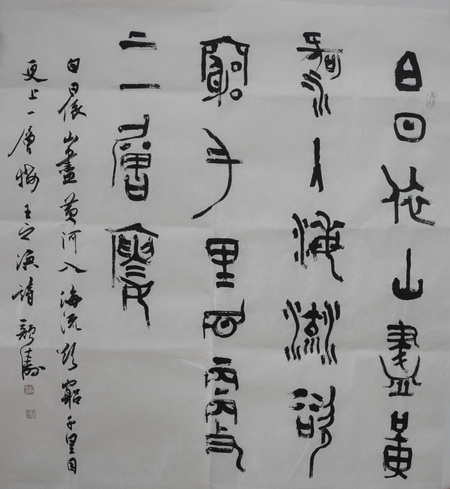 白日依山盡黃
河入海流欲
窮千里目更
上一層樓
白日依山盡黃河入海流欲窮千里目
更上一層樓王之渙詩